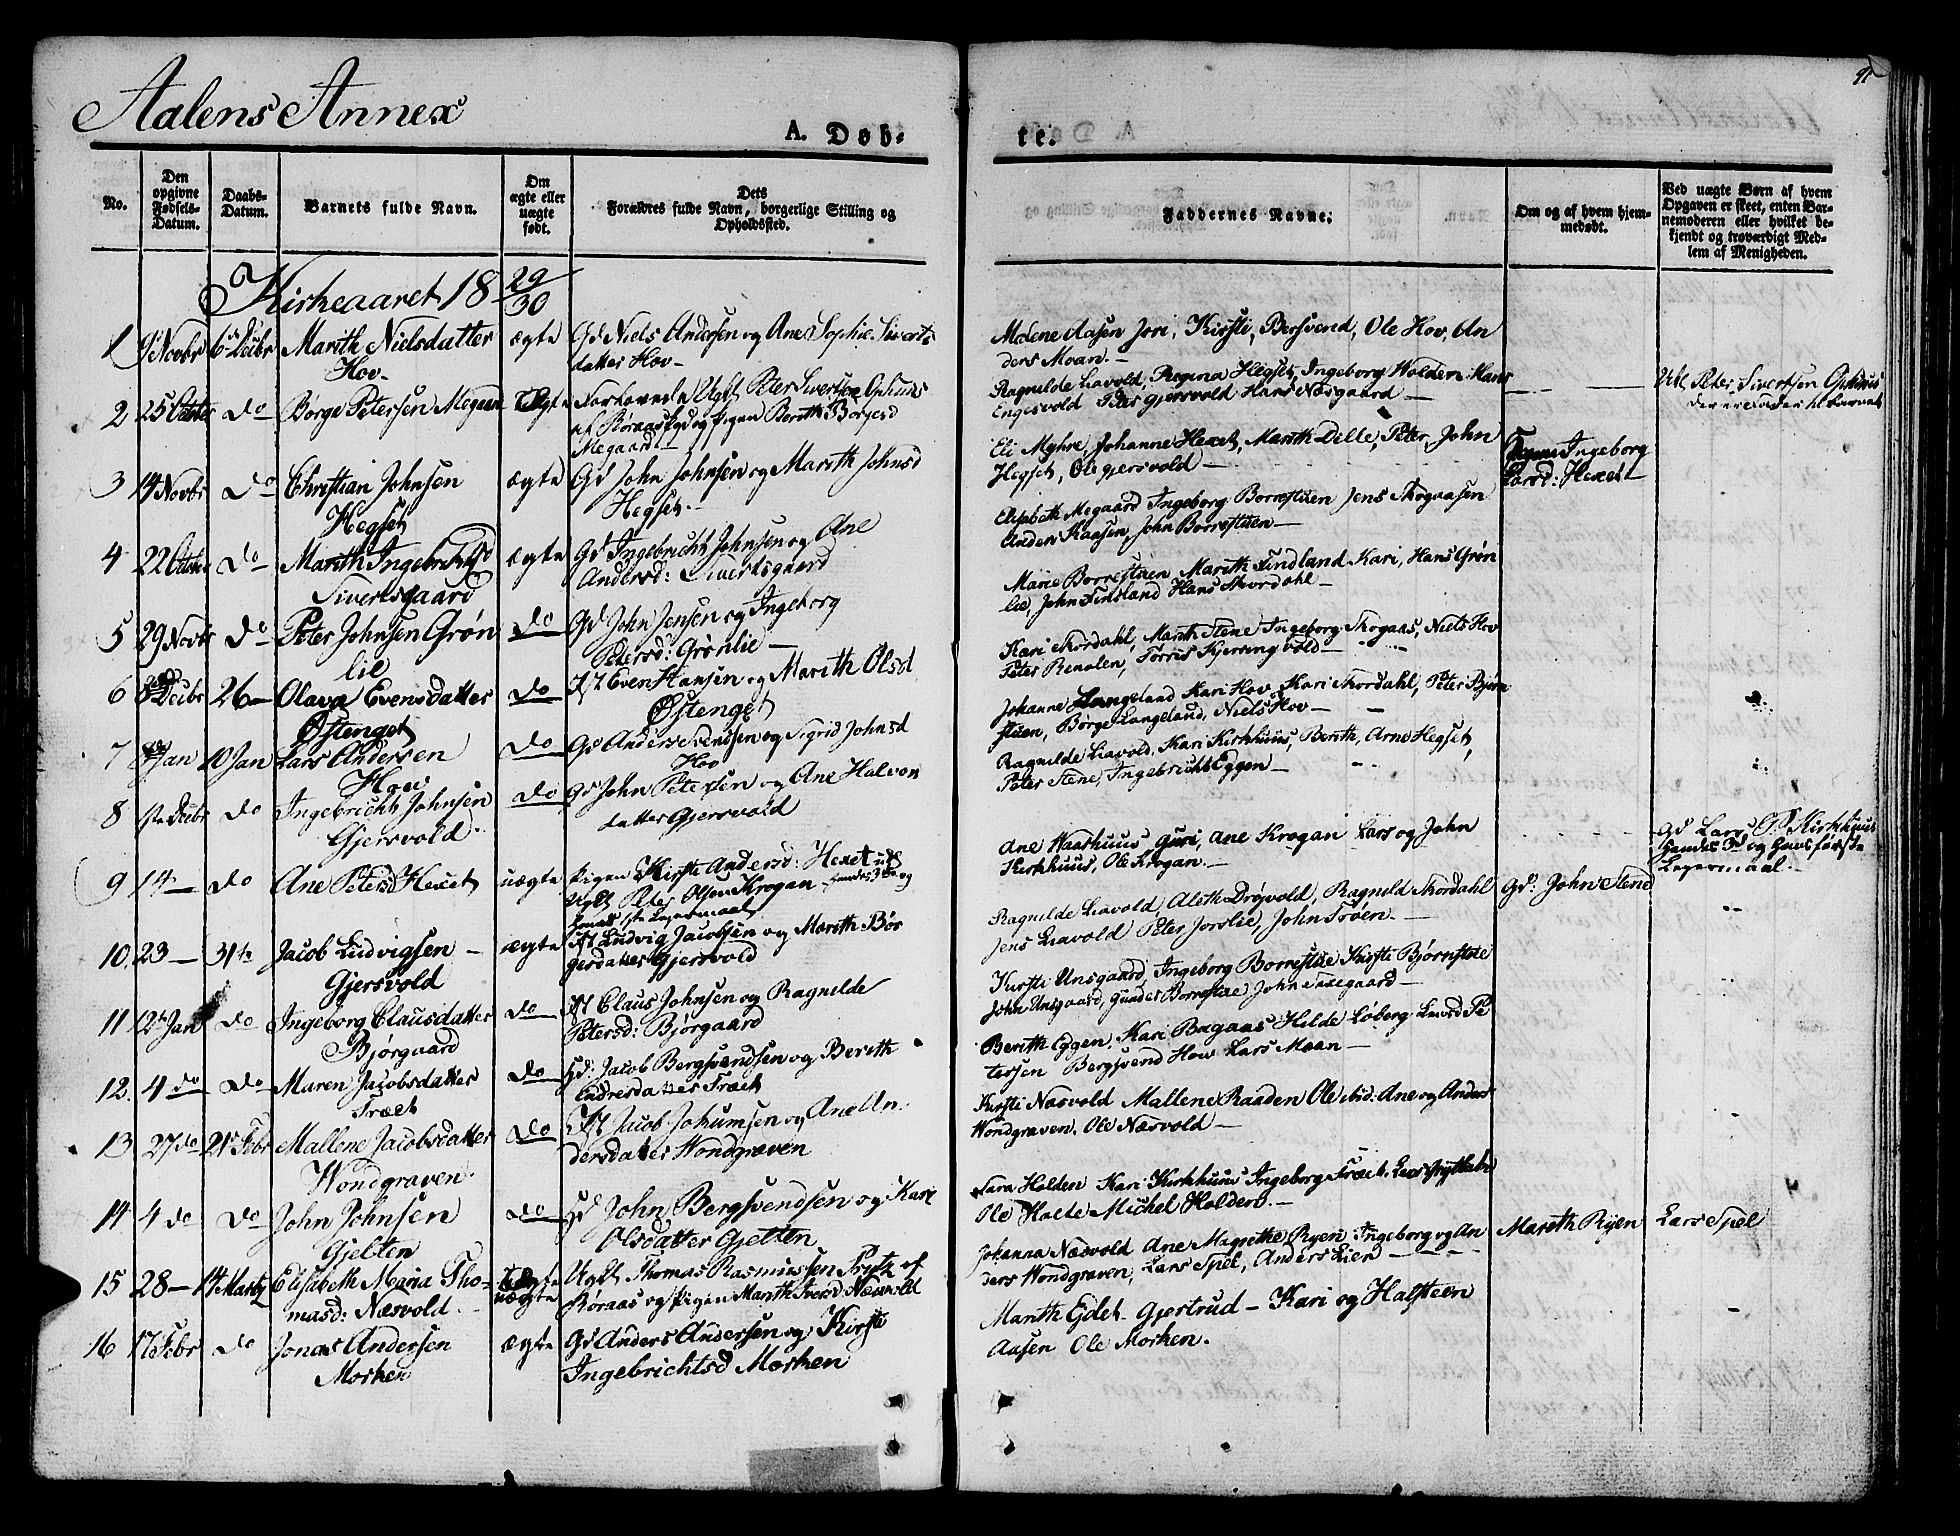 91
Aalens Annex
A. Døb-
te.
No.
Den opgivne Fødsels-Datum.
Daabs-Datum.
Barnets fulde Navn.
Om ægte eller uægte født.
Dets Forældres fulde Navn, borgerlige Stilling og Opholdssted.
Faddernes Navne.
Om og af hvem hjem-medøbt.
Ved uægte Børn af hvem Opgaven er skeet, enten Bar-nemoderen eller hvilket be-kjendt og troværdigt Med-lem af Menigheden.
Kirkeaaret 18 29/30
1 9de Novbr 6te Decbr Marith Nielsdatter ægte Gd Niels Andersen og Ane Sophie Siverts
Hov datter Hov
Malene Aasen Jori, Kirsti, Bersvend, Ole Hov, An
ders Moan.
2 25 Octbr do Børge Petersen Megaard Uægte Forlovede Ugkl Peter Sivertsen Ophuus
af Røraas og Pigen Berith Børgesd
Megaard
Ragnilde Liavold, Regina Hegset, Ingeborg Holden Hans
Engesvold Peter Gjersvold Hans Næsgaard
Ukl Peter Sivertsen Ophuus
der er Fader til Barnet
3 14 Novbr do Christian Johnsen ægte Gd John Johnsen og Marith Johnsd
Hegset Hegset
Eli Myhre, Johanne Hexet, Marith Dille, Peter, John
Hegset, Ole Gjersvold
Ingeborg
Larsd: Hexet
4 22 Octbr do Marith Ingebrichtsd ægte Gd Ingebricht Johnsen og Ane
Sivertsgaard Andersd: Sivertsgaard
Elisabeth Megaard Ingeborg Borrestuen Jens Skogaasen
Anders Kaasen, John Borrestuen
5 29 Novbr do Peter Johnsen Grøn do Gd John Jensen og Ingeborg
lie Petersd: Grønlie
Marie Borrestuen, Marith Finland Kari, Hans Grøn
lie, John Finsland Hans Skordahl
6 8de Decbr 26 Olava Evensdatter do Hd Even Hansen og Marith Olsd
Østenget Østenget
Kari Skordahl, Marith Stene Ingeborg Skogaas, Niels Hov
Peter Renolen, Torris Kjerringvold
7 Jan 10 Jan Lars Andersen do Gd Anders Svendsen og Sigrid Johnsd
Hov Hov
Johanne Langeland Kari Hov, Kari Skordahl, Peter Bjørn
stuen, Børge Langeland, Niels Hov
8 1ste Decbr do Ingebricht Johnsen do Gd John Petersen og Ane Halvor
Gjersvold datter Gjersvold
Ragnilde Liavold, Kari Kirkhuus, Berith, Arne Hegset,
Peter Stene, Ingebricht Eggen
9 14 do Ane Petersd Hexet uægte Pigen Kirsti Andersd: Hexet
Ugkl Peter Olsen Krogan
Ane Haarhuus, Guri, Ane Krogan Lars og John
Kirkhuus, Ole Krogan
Gd Lars O. Kirkhuus
hendes 3d og hans første
Leiermaal.
10. 23 31te Jacob Ludvigsen ægte Hd Ludvig Jacobsen og Marith Bør
Gjersvold gersdatter Gjersvold
Ragnilde Liavold, Aleth Drøyvold, Ragnild Skordahl
Jens Liavold Peter Jorslie, John Trøen.
Gd: John Stene
11 12te Jan do Ingeborg Clausdatter do Hd Claus Johnsen og Ragnilde
Bjørgaard Petersd: Bjørgaard
Kirsti Unsgaard, Ingeborg Borrestue Kirsti Bjørnstue
John Unsgaard, Gunder Borrestue, John Sixegaard
12. 4 do do Maren Jacobsdatter do Hd: Jacob Bergsvendsen og Berith
Træet Endresdatter Træet
Berith Eggen, Kari Bagaas Hilde Løberg Lars Pe
tersen Bergsvend Hov Lars Moan
13 27 do 21de Febr Mallene Jacobsdatter do Hd Jacob Johansen og Ane An
Wondgraven. dersdatter Wondgraven
Kirsti Næsvold Mallene Raaden Ole ibid: Ane og Anders
Wondgraven. Ole Næsvold
14. 4 do do John Johnsen do Hd John Bergsvendsen og Kari
Gjelten Olsdatter Gjelten
Sara Holden Kari Kirkhuus Ingeborg Træet. Lars Grytbak
Ole Holte Michel Holden.
15 28 14 Martz Elisabeth Maria Tho- uægte Ugkl Thomas Rasmussen Prytz af
masd: Næsvold. Røraas og Pigen Marith Iversd Næsvold
Johanna Næsvold Ane Magrethe Ryen, Ingeborg og An
ders Wondgraven, Lars Spel, Anders Lien
Mareth Ryen Lars Spel
16 17 Febr do Jonas Andersen ægte Gd Anders Andersen og Kirsti
Morken Ingebrichtsd Morken
Marith Eidet Gjertrud Kari og Halsteen
Aasen Ole Morken.